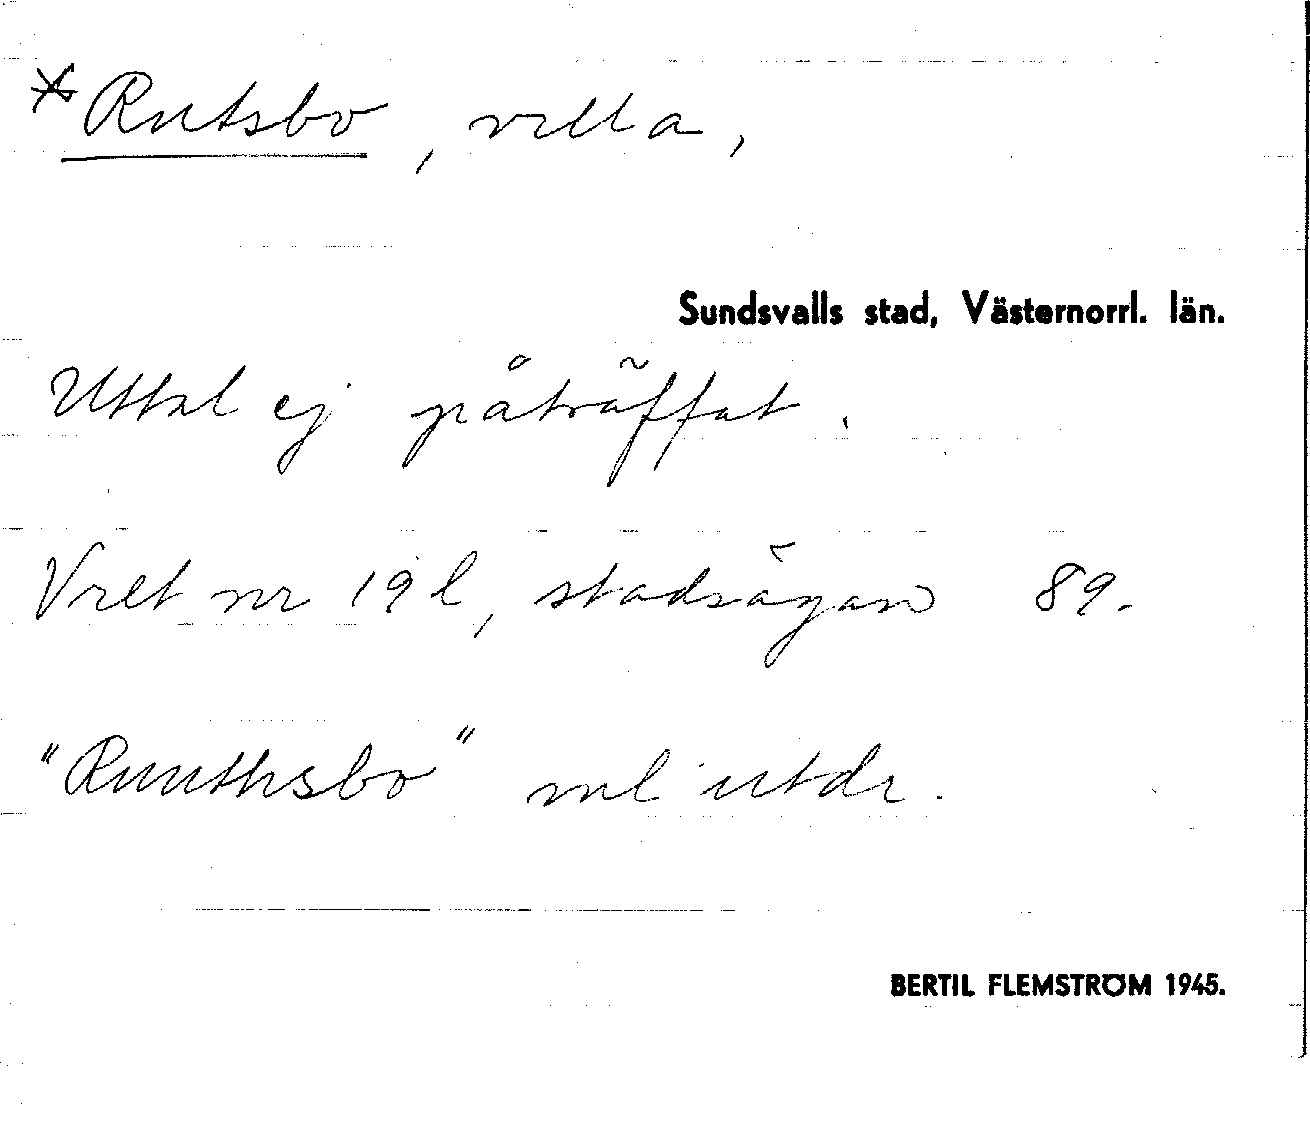 *Rutsbo, villa,
Sundsvalls stad, Västernorrl. län.
Uttal ej påträffat.
Vret nr 19 l, stadsägan 89.
"Ruuthsbo" ml utdr.
BERTIL FLEMSTRÖM 1945.